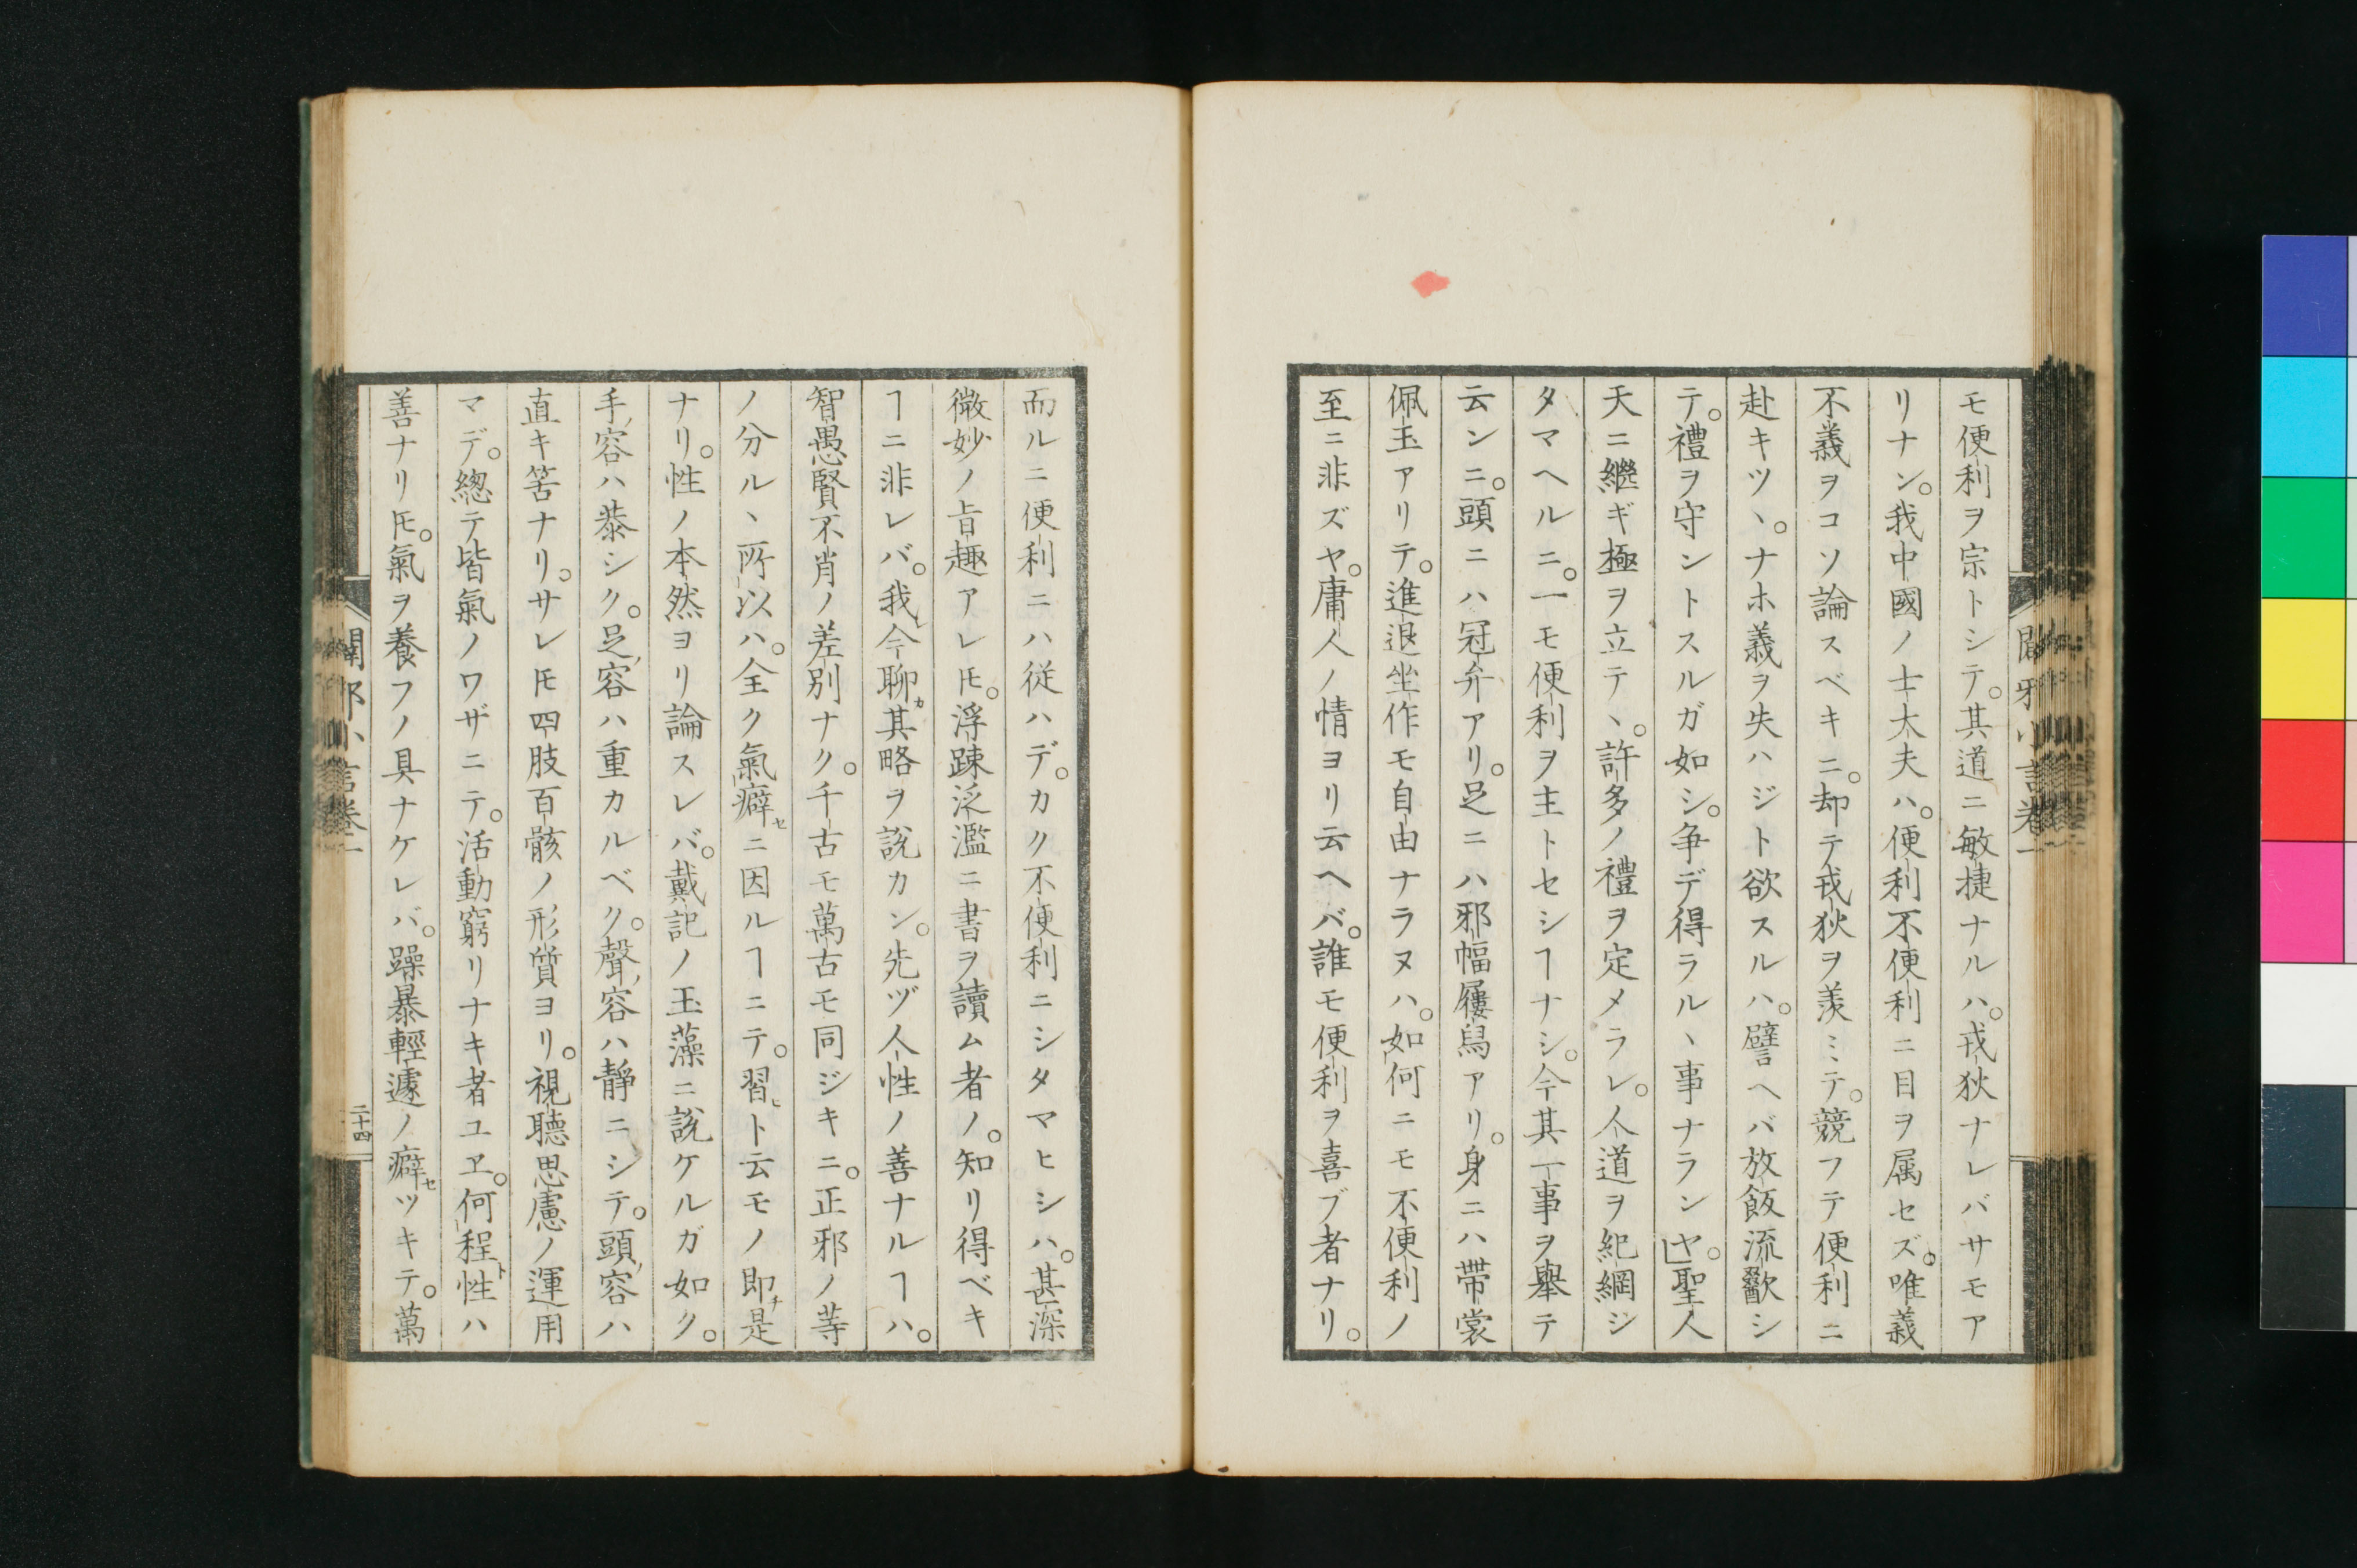 モ便利ヲ宗トシテ。其道ニ敏捷ナルハ。戎狄ナレバサモア
リナン。我中國ノ士大夫ハ。便利不便利ニ目ヲ属セズ。唯義
不義ヲコソ論スベキニ。却テ戎狄ヲ羨ミテ。競フテ便利ニ
赴キツヽ。ナホ義ヲ失ハジト欲スルハ。譬ヘバ放飯流歠シ
テ。禮ヲ守ントスルガ如シ。争デ得ラルヽ事ナランヤ。聖人
天ニ繼ギ極ヲ立テヽ。許多ノ禮ヲ定メラレ。人道ヲ紀綱シ
タマヘルニ。一モ便利ヲ主トセシヿナシ。今其一事ヲ舉テ
云ンニ。頭ニハ冠弁アリ。足ニハ邪幅屨舃アリ。身ニハ帶裳
佩玉アリテ。進退坐作モ自由ナラヌハ。如何ニモ不便利ノ
至ニ非ズヤ。庸人ノ情ヨリ云ヘバ。誰モ便利ヲ喜ブ者ナリ。
而ルニ便利ニハ従ハデ。カク不便利ニシタマヒシハ。甚深
微妙ノ旨趣アレ𪜈。浮踈泛濫ニ書ヲ讀ム者ノ。知リ得ベキ
ヿニ非レバ。我今聊カ其略ヲ說カン。先ヅ人性ノ善ナルヿハ。
智愚賢不肖ノ差別ナク。千古モ萬古モ同ジキニ。正邪ノ等
ノ分ルヽ所以ハ。全ク氣癖セニ因ルヿニテ。習ヒト云モノ即チ是
ナリ。性ノ本然ヨリ論スレバ。戴記ノ玉藻ニ說ケルガ如ク。
手ノ容ハ恭シク。足ノ容ハ重カルベク。聲ノ容ハ靜ニシテ。頭ノ容ハ
直キ筈ナリ。サレ𪜈四肢百骸ノ形質ヨリ。視聽思慮ノ運用
マデ。總テ皆氣ノワザニテ。活動窮リナキ者ユヱ。何程ト性ハ
善ナリ𪜈。氣ヲ養フノ具ナケレバ。躁暴輕遽ノ癖セツキテ。萬
闢邪小言卷一
二十四